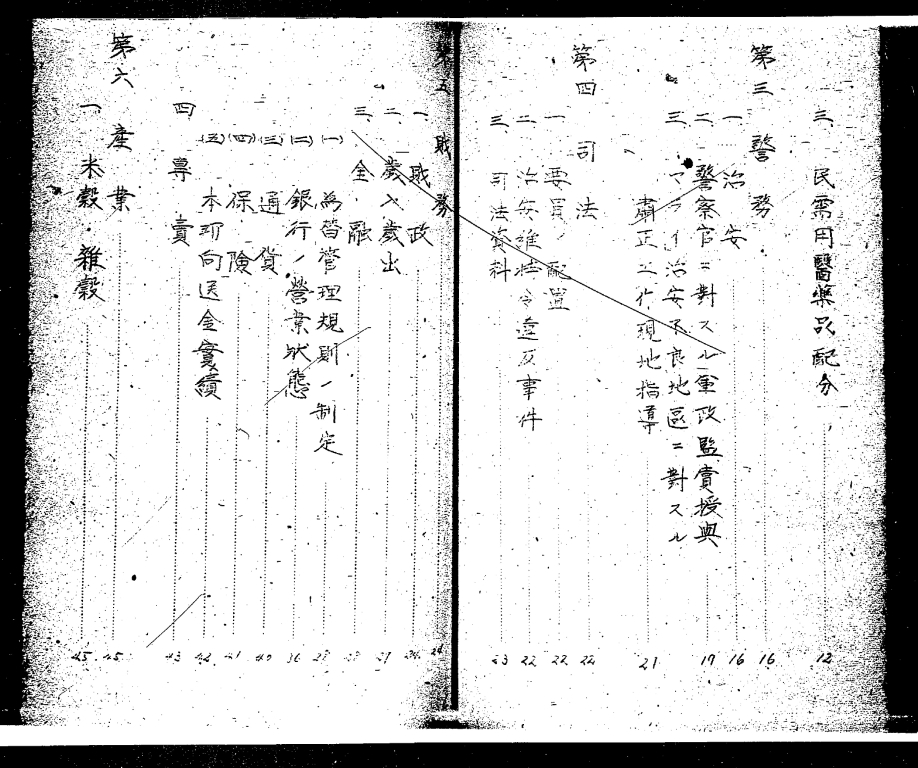 三、民需用醫藥品配分 12
第三 警務 16
一、治安 16
二、警察官ニ對スル軍政監賞授與 17
三、マライ治安不良地區ニ對スル
肅正工作現地指導 21
第四 司法 22
一、要員ノ配置 22
二、治安維持令違反事件 22
三、司法資料 23
第五 財務
一、財政
二、歲入歲出
三、金融
(一) 為替管理規則ノ制定
(二) 銀行ノ營業狀態 36
(三) 通貨 40
(四) 保險 41
(五) 本邦向送金實績 42
四 專賣 43
第六 產業 45
一 米穀・雜穀 45